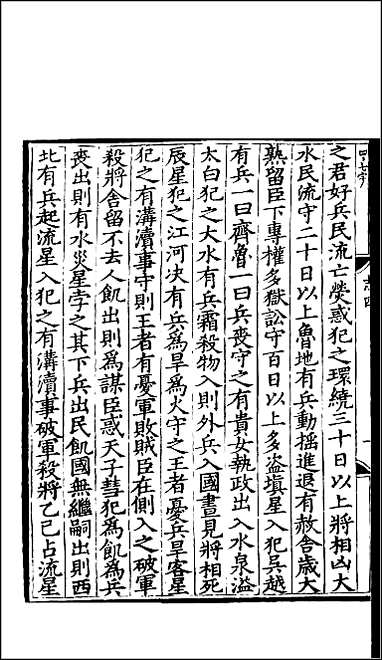 之君好兵民流亡熒惑犯之環繞三十日以上將相凶大
水民流守二十日以上魯地有兵動搖進退有赦舍歳大
熟留臣下專權多獄訟守百日以上多盗塡星入犯吳越
有兵一曰齊魯一曰兵喪守之有貴女執政出入水泉溢
太白犯之大水有兵霜殺物入則外兵入國晝見將相死
辰星犯之江河決有兵爲旱爲火守之王者憂兵旱客星
犯之有溝瀆事守則王者有憂軍敗賊臣在側入之破軍
殺將舍留不去人飢出則爲謀臣惑天子彗犯爲飢爲兵
喪出則有水災星孛之其下兵出民飢國無繼嗣出則西
北有兵起流星入犯之有溝瀆事破軍殺將乙巳占流星